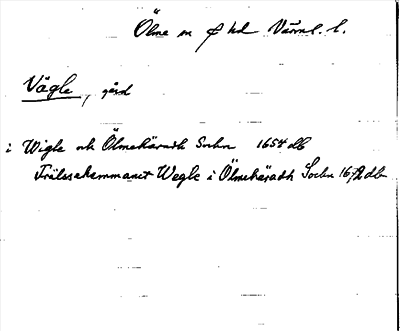 Ölme sn o hd Värml. l.
Vägle, gård
i Wigle och Ölmehäradh Sochn 1654 db
Frälssehemmanet Wegle i Ölmehäradh Sochn 1672 db